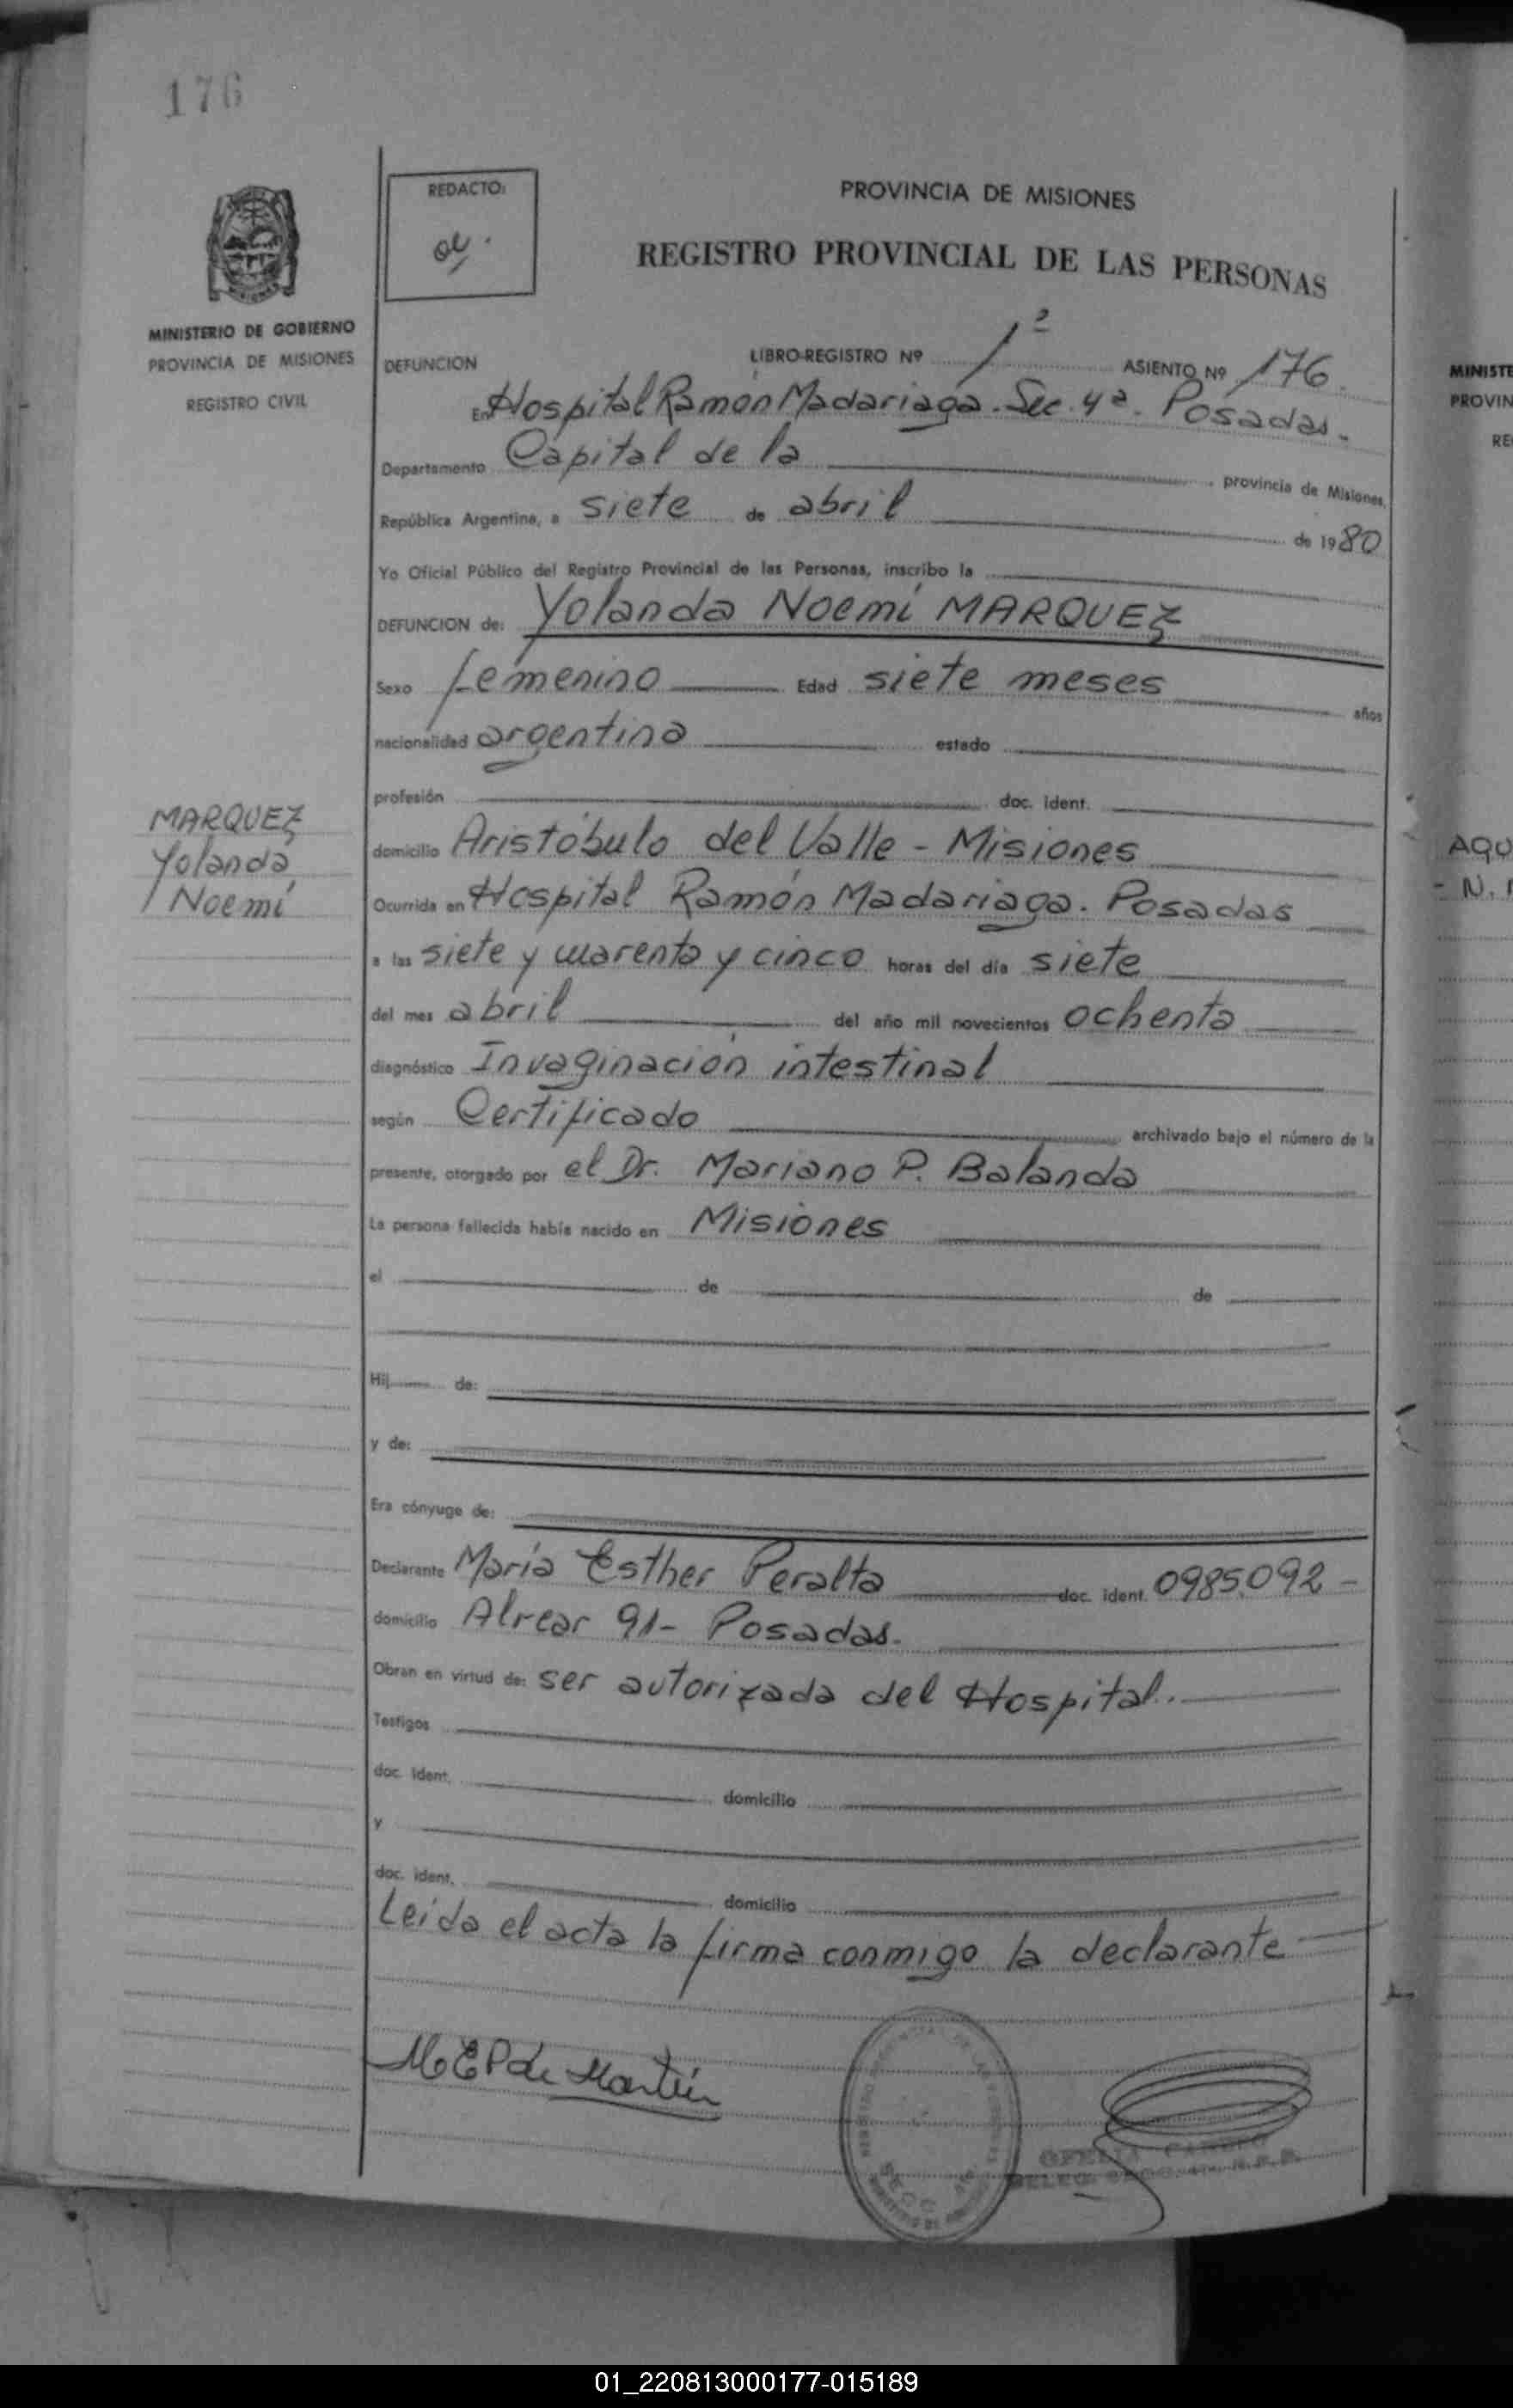 176
REDACTO:
PROVINCIA DE MISIONES
REGISTRO PROVINCIAL DE LAS PERSONAS
MINISTERIO DE GOBIERNO
PROVINCIA DE MISIONES
REGISTRO CIVIL
DEFUNCION LIBRO-REGISTRO Nº 1º ASIENTO Nº 176
En Hospital Ramón Madariaga. Sec. 4ª. Posadas.
Departamento Capital de la provincia de Misiones,
República Argentina, a siete de abril de 1980
Yo Oficial Público del Registro Provincial de las Personas, inscribo la
DEFUNCION de: Yolanda Noemí MARQUEZ
Sexo femenino Edad siete meses años
nacionalidad argentina estado
profesión doc. ident.
MARQUEZ
Yolanda
Noemí
domicilio Aristóbulo del Valle - Misiones
Ocurrida en Hospital Ramón Madariaga. Posadas
a las siete y cuarenta y cinco horas del día siete
del mes abril del año mil novecientos ochenta
diagnóstico Invaginación intestinal
según Certificado archivado bajo el número de la
presente, otorgado por el Dr. Mariano P. Balanda
La persona fallecida había nacido en Misiones
el de de
Hij de:
y de:
Era cónyuge de:
Declarante María Esther Peralta doc. ident. 0985.092-
domicilio Alvear 91- Posadas.
Obran en virtud de: ser autorizada del Hospital.
Testigos
doc. ident. domicilio
y
doc. ident. domicilio
Leída el acta la firma conmigo la declarante
M E P de Martín
OFELIA
MINISTE
PROVIN
RE
AQU
- N.
01_220813000177-015189